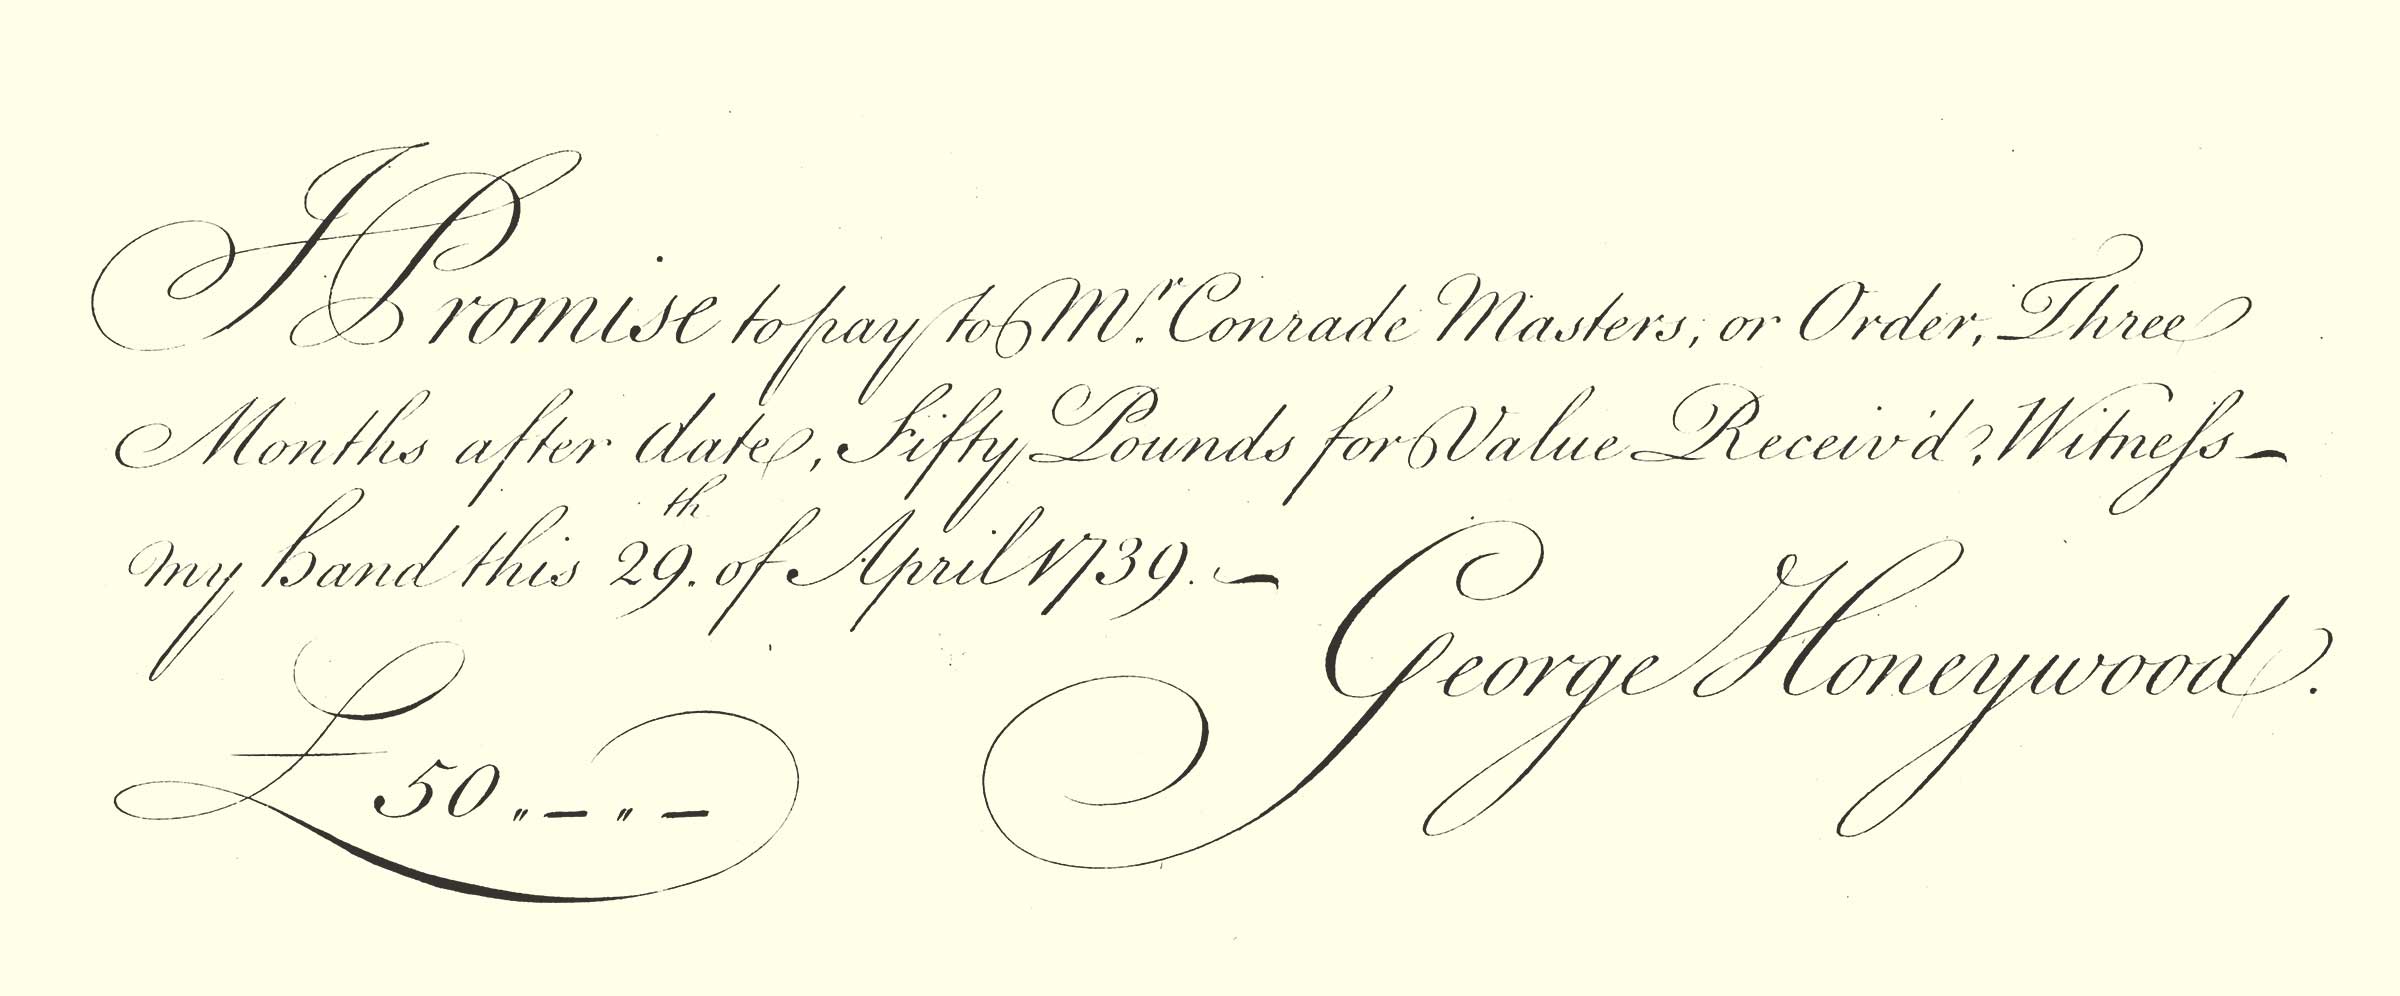 I Promise to pay to Mr. Conrade Masters, or Order, Three
Months after date, Fifty Pounds for Value Receiv'd; Witneſs –
my hand this 29.th of April 1739. –
George Honeywood.
£ 50 „ – „ –